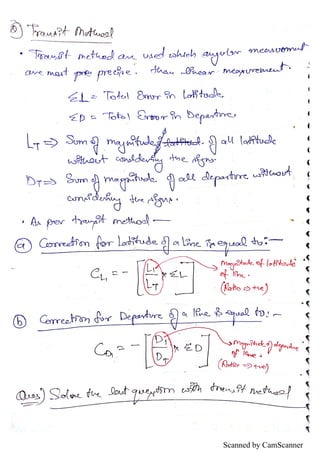 ⑧ Transit Method
• Transit method are used which angular measurement
are most pre precise. than linear measurement.
ΣL = Total Error in Latitude.
ΣD = Total Error in Departure.
L_T ⇒ Sum of magnitude of all latitude
without considering the signs.
D_T ⇒ Sum of magnitude of all departure without
considering the signs.
• As per transit method —
ⓐ Correction for Latitude of a line is equal to:-
C_L1 = - [ L1 / L_T × ΣL ] → Magnitude of latitude of line. (Ratio ⇒ +ve)
ⓑ Correction for Departure of a line is equal to: -
C_D1 = - [ D1 / D_T × ΣD ] → Magnitude of departure of line. (Ratio ⇒ +ve)
Ques) Solve the last question with transit method
Scanned by CamScanner